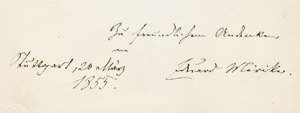 Zu freundlichem Andenken
an
Stuttgart, 20 März
1855.
Eduard Mörike.